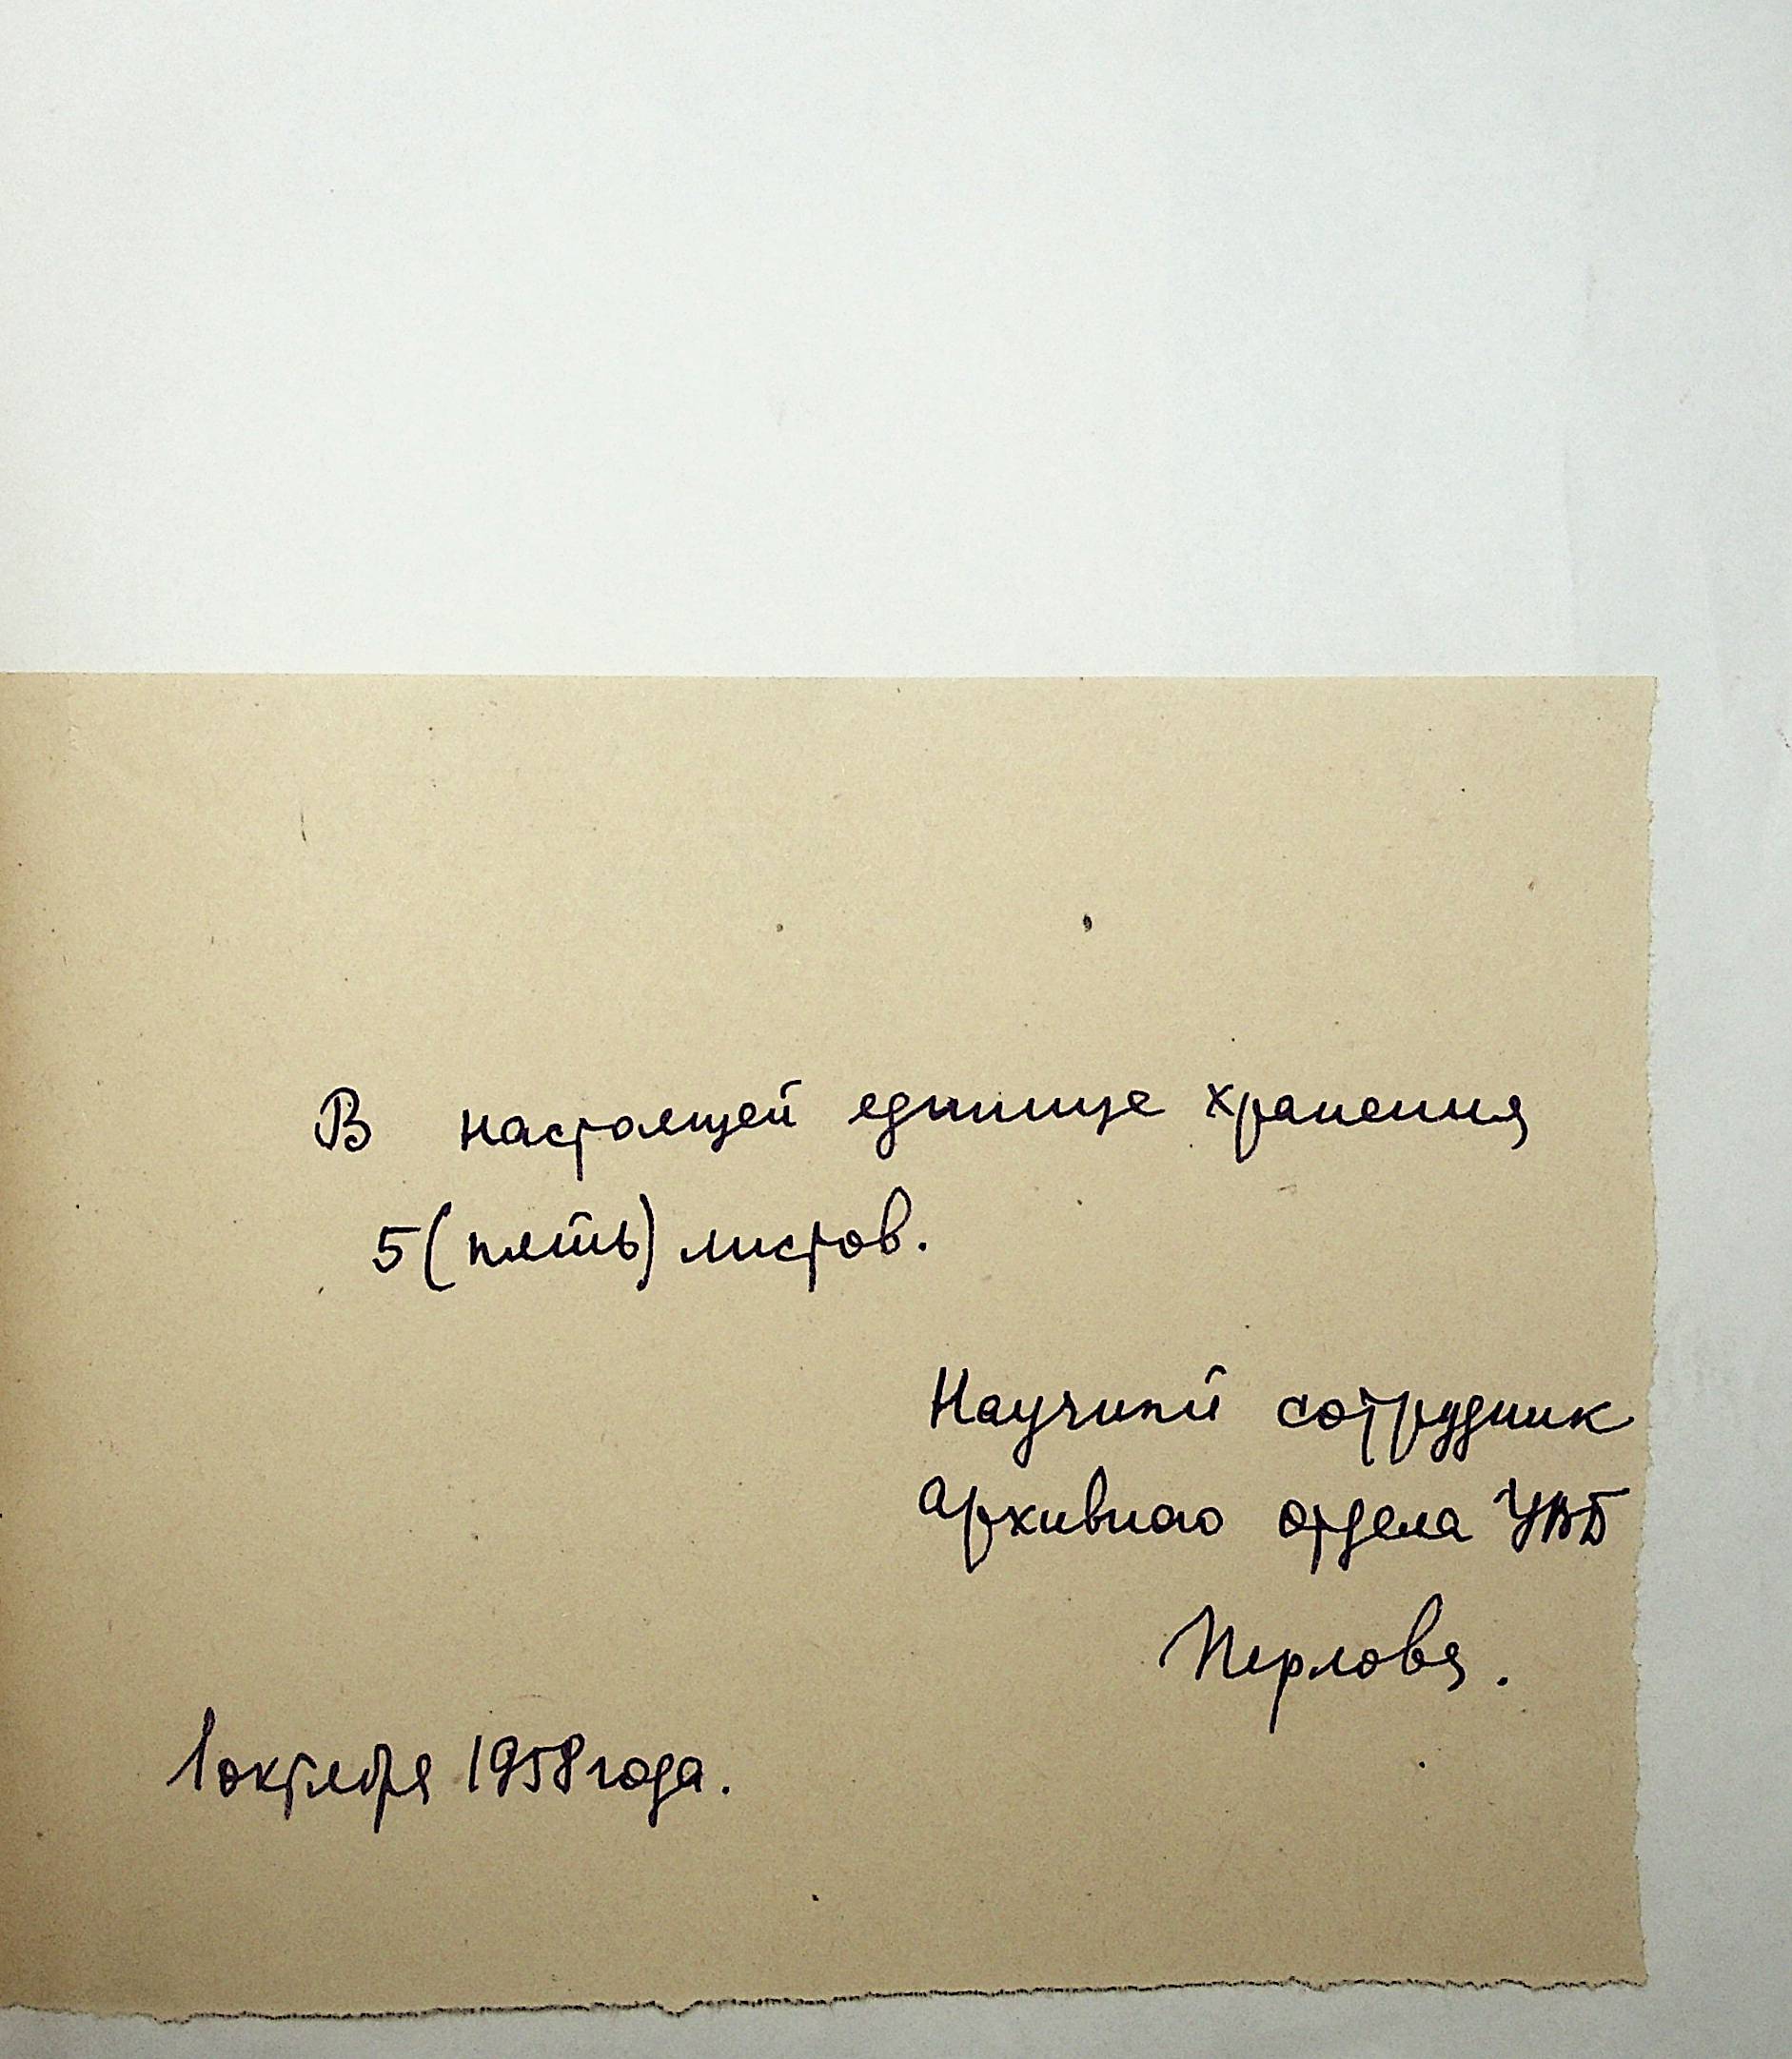 В настоящей единице хранения
5 (пять) листов.
Научный сотрудник
архивного отдела
Перлова.
1 октября 1958 года.